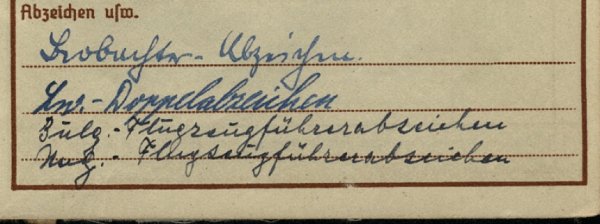 Abzeichen usw.
Beobachter-Abzeichen.
Lw.-Doppelabzeichen
Bulg.-Flugzeugführerabzeichen
Ung.-Flugzeugführerabzeichen